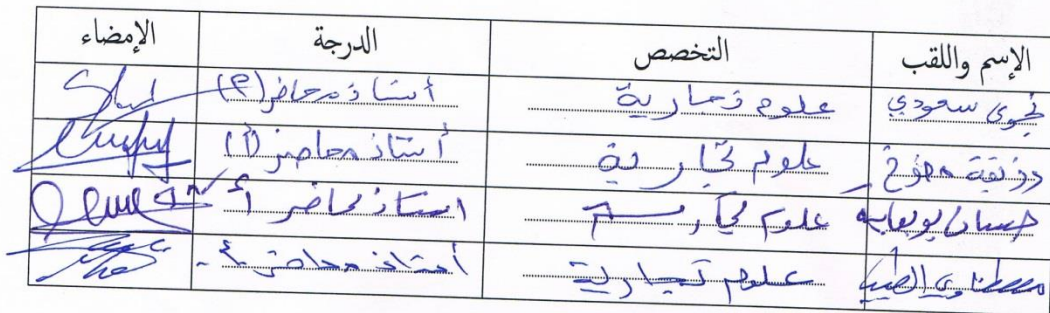 الإسم واللقب التخصص الدرجة الإمضاء
نجوى سعودي علوم تجارية أستاذ محاضر (P)
علوم تجارية أستاذ محاضر (أ)
حسان بوبعاية علوم تجارية استاذ محاضر أ
الطيب علوم تجارية أستاذ محاضر -أ-